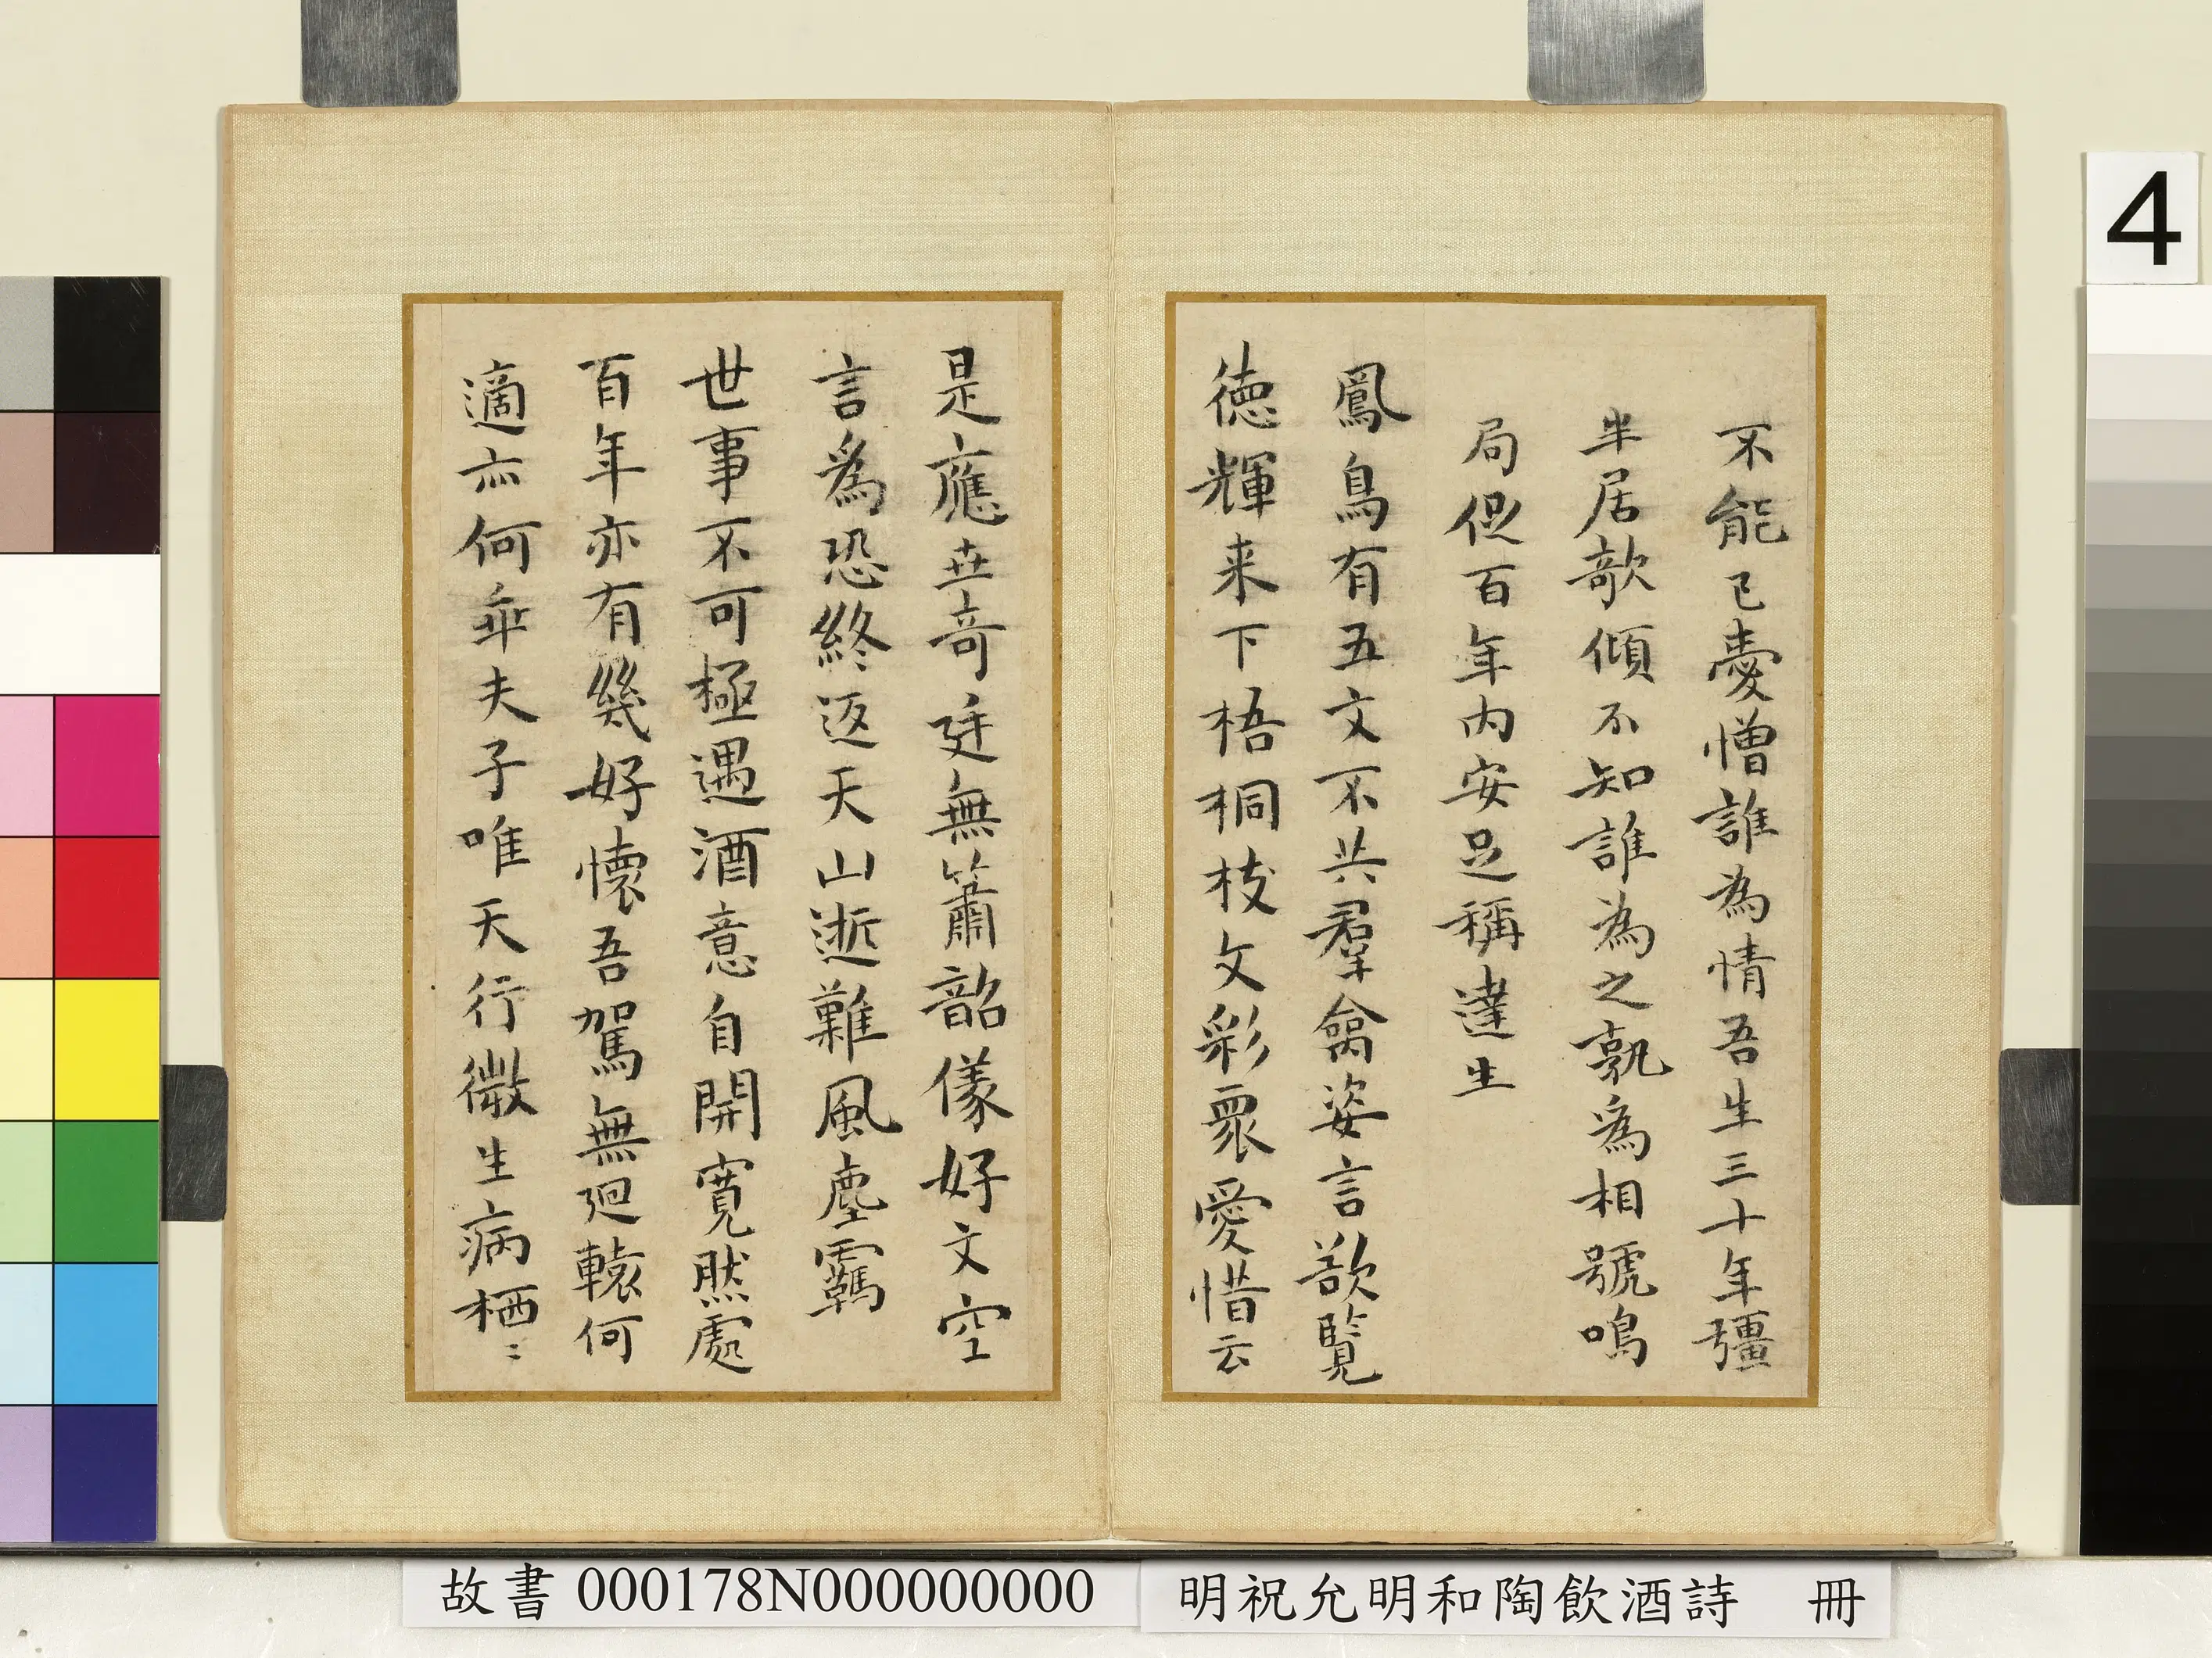 不能已憂憎誰為情吾生三十年彊
半居欹傾不知誰為之孰為相號鳴
局促百年內安足稱達生
鳳鳥有五文不共羣禽姿言欲覽
德輝来下梧桐枝文彩眾愛惜云
是應世奇廷無簫韶儀好文空
言為恐終返天山逝難風塵羈
世事不可極遇酒意自開寬然處
百年亦有幾好懷吾駕無迴轅何
適亦何乖夫子唯天行微生病栖〻
4
故書 000178N000000000
明祝允明和陶飲酒詩 冊